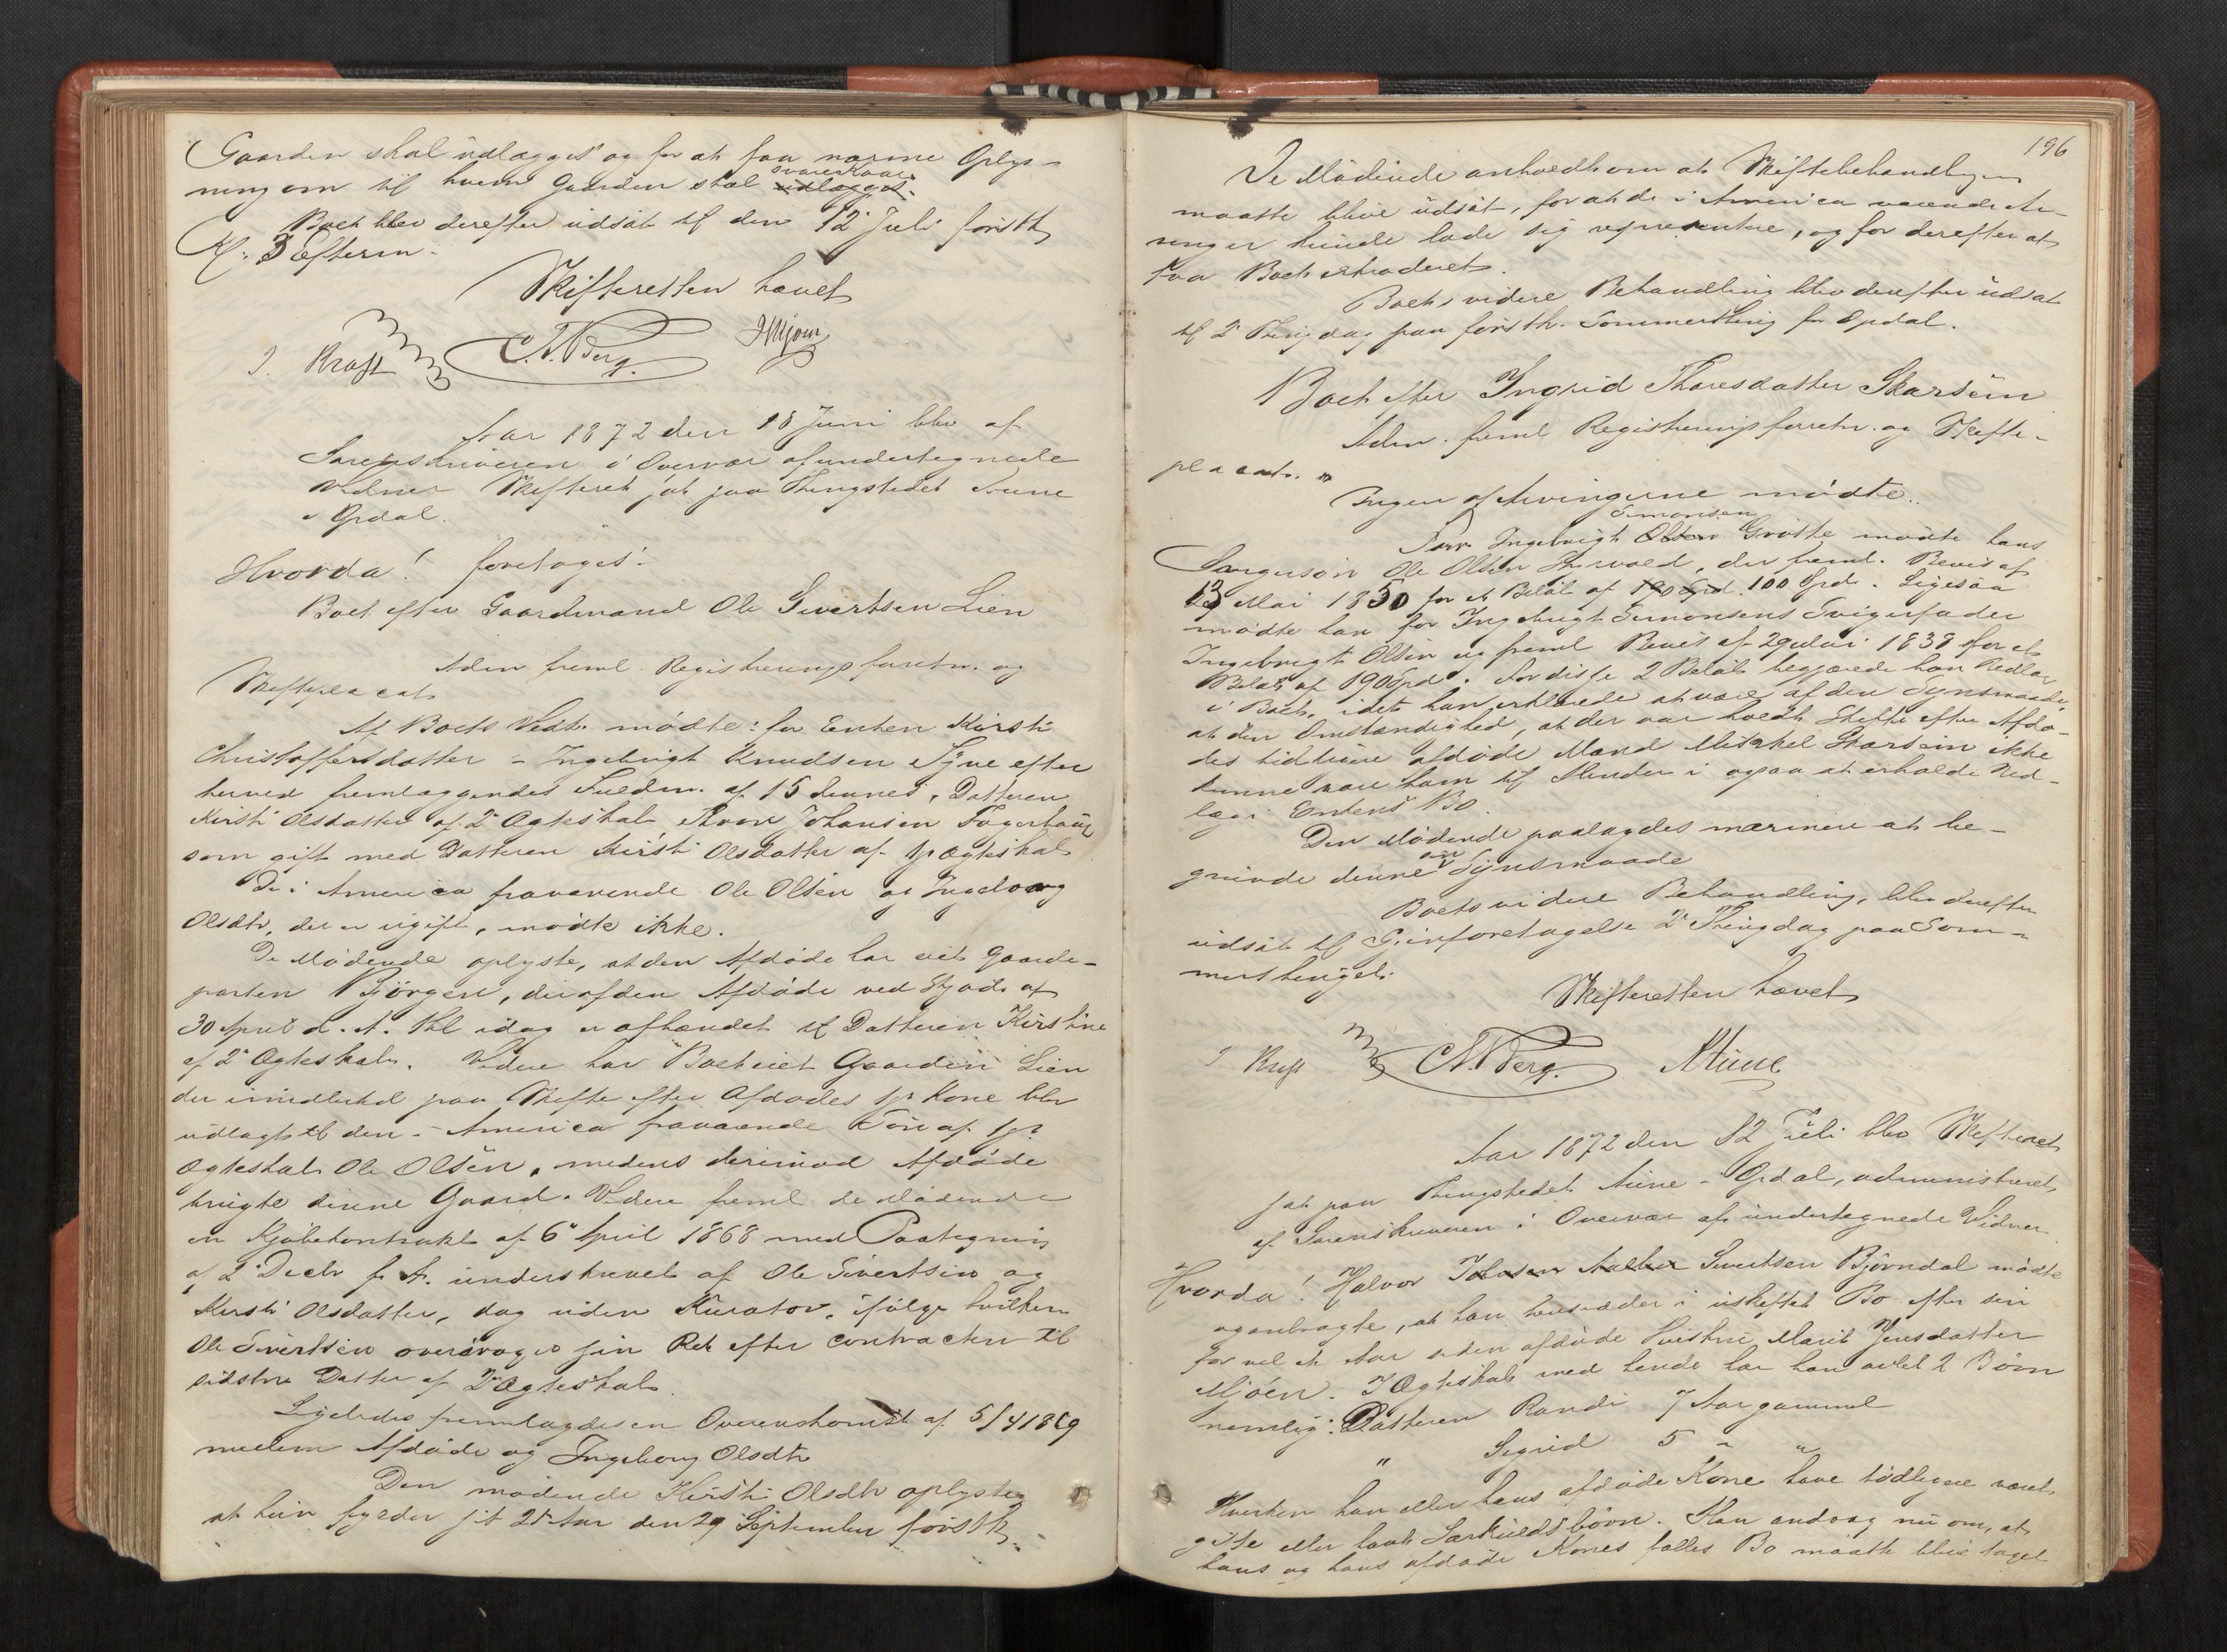 Gaarden skal udlægges og for at faa nærme Oplys-
ning om til hvem Gaarden skal svares Kaar udlægges.
Boet blev derefter udsat til den 12 Juli førstk
Kl: 3 Efterm.
Skifteretten hævet
J. Kraft C.N.Berg. JMjoen
Aar 1872 den 18 Juni blev af
Sorenskriveren i Overvær af undertegnede
Vidner Skifteret sat paa Thingstedet Aune
i Opdal.
Hvorda! foretoges:
Boet efter Gaardmand Ole Sivertsen Lien
Adm. freml. Registreringsforretn. og
Skifteplacat
Af Boets Vedk. mødte: for Enken Kirsti
Christoffersdatter - Ingebrigt Knudsen Syve efter
herved fremlæggendes Fuldm. af 15 dennes, Datteren
Kirsti Olsdatter af 2t Ægteskab, Johansen Fagerhaug
som gift med Datteren Kirsti Olsdatter af 1ste Ægteskab
De i America fraværende Ole Olsen og Ingeborg
Olsdtr, der er ugift, mødte ikke.
De Mødende oplyste, at den Afdøde har eiet Gaard-
parten Bjørgen, der af den Afdøde ved Skjøde af
30 April d. A. thl idag er afhændet til Datteren Kirstine
af 2t Ægteskab. Videre har Boet eiet Gaarden Lien
der imidlertid paa Skifte efter Afdødes 1ste Kone blev
udlagt til den i America fraværende Søn af 1ste
Ægteskab Ole Olsen, medens derimod Afdøde
brugte denne Gaard. Videre freml. de Mødende
en Kjøbekontrakt af 6te April 1868 med Paategning
af 2 Decbr f. A. underskrevet af Ole Sivertsen og
Kirsti Olsdatter, dog uden Kurator, ifølge hvilken
Ole Sivertsen overdrager sin Ret efter Contracten til
sidstn. Datter af 2t Ægteskab.
Ligeledes fremlagdes en Overenskomst af 5/4 1869
mellem Afdøde og Ingeborg Olsdtr
Den mødende Kirsti Olsdtr oplyste
at hun fylder sit 25 Aar den 29 September førstk.
196
De Mødende anholdt om at Skiftebehandlingen
maatte blive udsat, for at de i America værende Ar-
vinger kunde lade sig repræsentere, og for derefter at
faa Boet extraderet.
Boets videre Behandling blev derefter udsat
til 2 Thingdag paa førstk. Sommerthing for Opdal.
Boet efter Ingrid Thoresdatter Skarsem
Adm. freml Registreringsforretn. og Skifte-
placat.
Ingen af Arvingerne mødte.
For Ingebrigt Olsen Simonsen Grøtte mødte hans
Svigersøn Ole Olsen, der freml. Bevis af
13 Mai 1850 for et Beløb af 190 Spd. 100 Spd. Ligesaa
mødte han for Ingebrigt Simonsens Svigerfader
Ingebrigt Olsen og freml Bevis af 29 Mai 1838 for et
Beløb af 190 Spd. For disse 2 Beløb begjærede han Udlæg
i Boet, idet han erklærede at være af den Synsmaade,
at den Omstændighed, at der var holdt Skifte efter Afdø-
des tidligere afdøde Mand Mikkel Skarsem ikke
kunne være ham til Hinder i ogsaa at erholde Ud-
læg i Enkens Bo.
Den Mødende paalagdes nærmere at be-
grunde denne sin Synsmaade
Boets videre Behandling, blev derefter
udsat til Gjenforetagelse 2 Thingdag paa Som-
merthinget.
Skifteretten hævet
J Kraft C.N.Berg. Aune
Aar 1872 den 12 Juli blev Skifteret
sat paa Thingstedet Aune i Opdal, administreret
af Sorenskriveren i Overvær af undertegnede Vidner
Hvorda! Halvor Johnsen Sivertsen Bjørndal mødte
og anbragte, at han hensidder i uskiftet Bo efter sin
for vel et Aar siden afdøde Hustru Marit Jensdatter
Mjøen. I Ægteskab med hende har han avlet 2 Børn
nemlig: Datteren Randi 7 Aar gammel
" Sigrid 5 " "
Hverken han eller hans afdøde Kone have tidligere været
gifte eller havt Særkuldsbørn. Han androg nu om, at
hans og hans afdøde Kones fælles Bo maatte blive taget